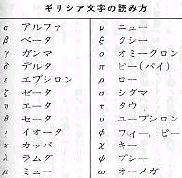 ギリシア文字の読み方
α アルファ ν ニュー
β ベータ ξ クシー
γ ガンマ ο オミークロン
δ デルタ π ピー(パイ)
ε エプシロン ρ ロー
ζ ゼータ σ シグマ
η エータ τ タウ
θ セータ υ ユープシロン
ι イオータ φ フィー、ピー
κ カッパ χ キー
λ ラムダ ψ プシー
μ ミュー ω オーメガ